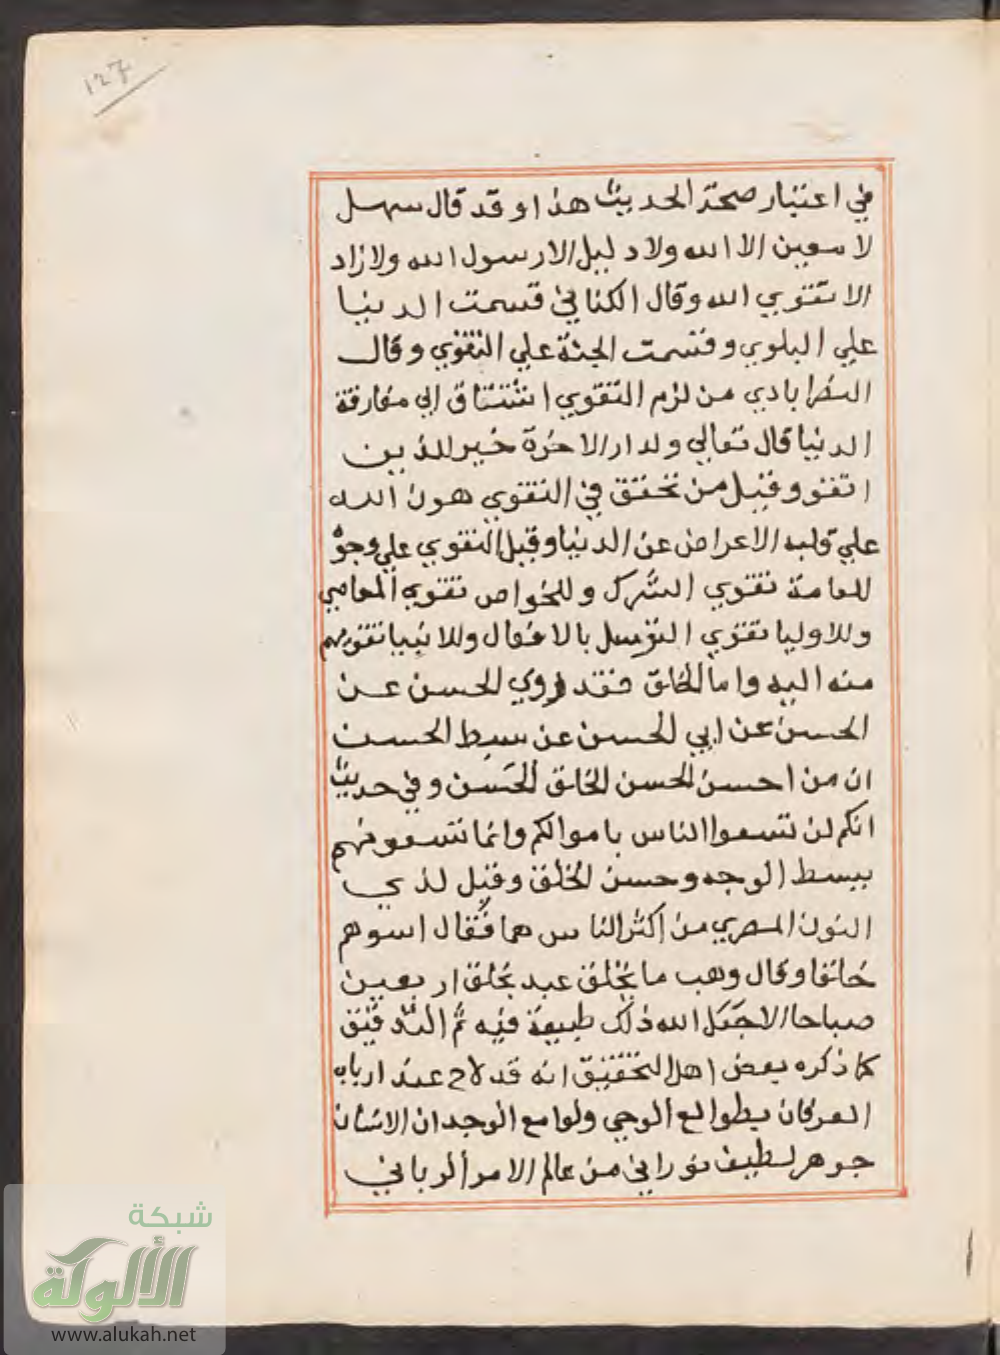 ١٢٧
في اعتبار صحة الحديث هذا وقد قال سهل
لا معين الا الله ولا دليل الا رسول الله ولا زاد
الا تقوي الله وقال الكتاني قسمت الدنيا
علي البلوي وقسمت الجنة علي التقوي وقال
النصرابادي من لزم التقوي اشتاق الي مفارقة
الدنيا قال تعالي ولدار الاخرة خير للذين
اتقو وقيل من تحقق في التقوي هون الله
علي قلبه الاعراض عن الدنيا وقيل التقوي علي وجوه
للعامة تقوي الشرك وللخواص تقوي المعاصي
وللاوليا تقوي التوسل بالافعال وللانبيا تقويهم
منه اليه واما الخلق فقد روي الحسن عن
الحسن عن ابي الحسن عن سبط الحسن
ان من احسن الحسن الخلق الحسن وفي حديث
انكم لن تسعوا الناس باموالكم وانما تسعونهم
ببسط الوجه وحسن الخلق وقيل لذي
النون المصري من اكثر الناس هما فقال اسوهم
خلقا وقال وهب ما يخلق عبد بخلق اربعين
صباحا الا جعل الله ذلك طبيعة فيه ثم التدقيق
كما ذكره بعض اهل التحقيق انه قد لاح عند ارباب
العرفان بطوالع الوحي ولوامع الوجدان الانسان
جوهر لطيف نوراني من عالم الامر الرباني
شبكة
الألوكة
www.alukah.net